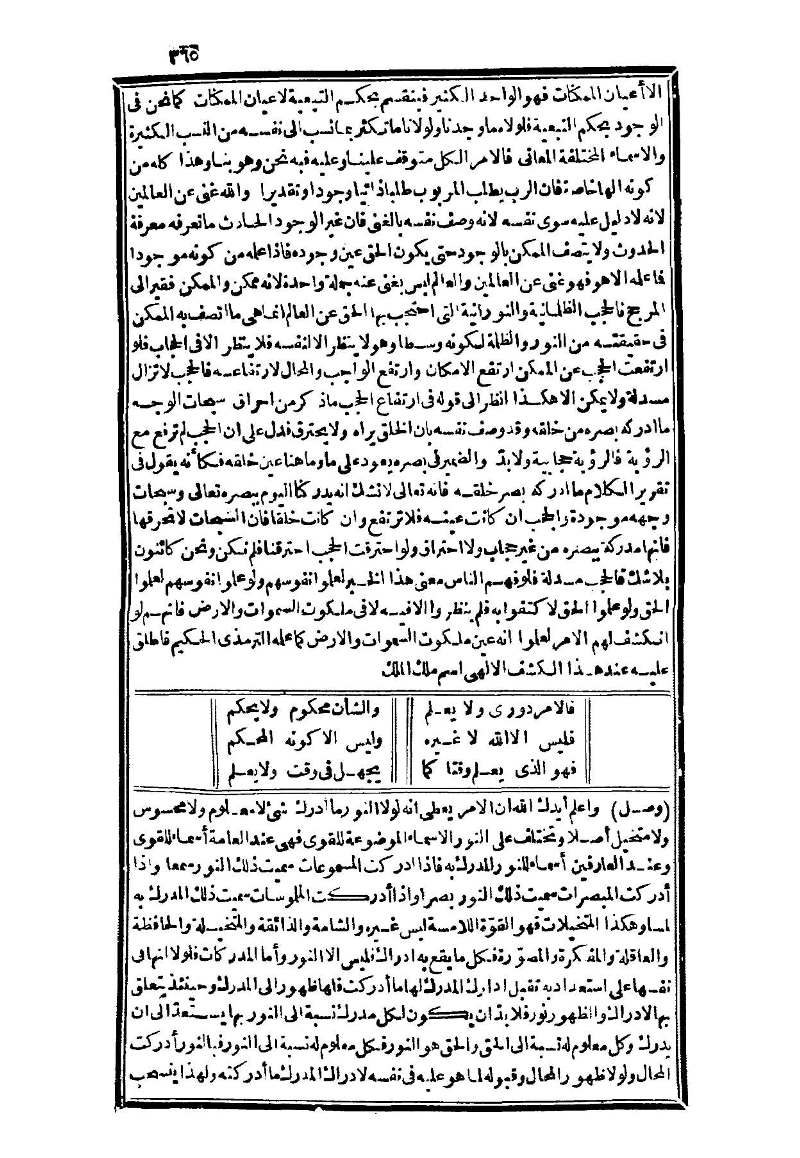 ٣٦٥
الا أعيان الممكنات فهو الواحد الكثير فينقسم بحكم التبعية لاعيان الممكنات كما نحن فى
الوجود بحكم التبعية فلولاه ما وجدنا ولولانا ما تكثر بما نسب الى نفسه من النسب الكثيرة
والاسماء المختلفة المعانى فالامر الكل متوقف علينا وعليه فبه نحن وهو بنا وهذا كله من
كونه الها خاصة فان الرب يطلب المربوب طلبا ذاتيا وجودا وتقديرا والله غنى عن العالمين
لانه لا دليل عليه سوى نفسه لانه وصف نفسه بالغنى فان غير الوجود الحادث ما تعرفه معرفة
الحدوث ولا يتصف الممكن بالوجود حتى يكون الحق عين وجوده فاذا علمه من كونه موجودا
فاعلمه الا هو فهو غنى عن العالمين والعالم ليس بغنى عنه جملة واحدة لانه ممكن والممكن فقير الى
المرجح فالحجب الظلمانية والنورانية التى احتجب بها الحق عن العالم انما هى ما اتصف به الممكن
فى حقيقته من النور والظلمة لكونه وسطا وهو لا ينظر الا لنفسه فلا ينظر الا فى الحجاب فلو
ارتفعت الحجب عن الممكن ارتفع الامكان وارتفع الواجب والمحال لارتفاعه فالحجب لا تزال
مسدلة ولا يمكن الا هكذا انظر الى قوله فى ارتفاع الحجب ما ذكر من احراق سبحات الوجه
ما ادركه بصره من خلقه وقد وصف نفسه بان الخلق يراه ولا يحترق فدل على ان الحجب لم ترفع مع
الرؤية فالرؤية حجابية ولا بد والضمير فى بصره يعود على ما وما هنا عين خلقه فكأنه يقول فى
تقرير الكلام ما ادركه بصر خلقه فانه تعالى لا نشك انه يدركنا اليوم ببصره تعالى وسبحات
وجهه موجودة والحجب ان كانت عينه فلا ترتفع وان كانت خلقا فان السبحات لا تحرقها
فانها مدركة ببصره من غير حجاب ولا احتراق ولو احترقت الحجب احترقنا فلم نكن ونحن كائنون
بلا شك فالحجب مسدلة فلو فهم الناس معنى هذا الخبر لعلموا نفوسهم ولو علموا نفوسهم لعلموا
الحق ولو علموا الحق لا كتفوا به فلم ينظروا الا فيه لا فى ملكوت السموات والارض فانهم لو
انكشف لهم الامر لعلموا انه عين ملكوت السموات والارض كما علمه الترمذى الحكيم فاطلق
عليه عند هذا الكشف الالهى اسم ملك الملك
فالامر دورى ولا يعلم والشان محكوم ولا يحكم
فليس الا الله لا غيره وليس الا كونه المحكم
فهو الذى يعلم وقتا كما يجهل فى وقت ولا يعلم
(وصل) واعلم أيدك الله ان الامر يعطى انه لولا النور ما أدرك شئ لا معلوم ولا محسوس
ولا متخيل أصلا وتختلف على النور الاسماء الموضوعة للقوى فهى عند العامة أسماء للقوى
وعند العارفين أسماء للنور المدرك به فاذا ادركت المسموعات سميت ذلك النور سمعا واذا
أدركت المبصرات سميت ذلك النور بصرا واذا أدركت الملموسات سميت ذلك المدرك به
لمسا وهكذا المتخيلات فهو القوة اللامسة ليس غيره والشامة والذائقة والمتخيلة والحافظة
والعاقلة والمفكرة والمصورة فكل ما يقع به ادراك فليس الا النور وأما المدركات فلولا انها فى
نفسها على استعداد به تقبل ادراك المدرك لها ما أدركت فلها ظهور الى المدرك وحينئذ يتعلق
بها الادراك والظهور نور فلا بد ان يكون لكل مدرك نسبة الى النور بها يستعد الى ان
يدرك وكل معلوم له نسبة الى الحق والحق هو النور فكل معلوم له نسبة الى النور فبالنور أدركت
المحال ولولا ظهور المحال وقبوله لما هو عليه فى نفسه لادراك المدرك ما أدركته ولهذا ينسحب